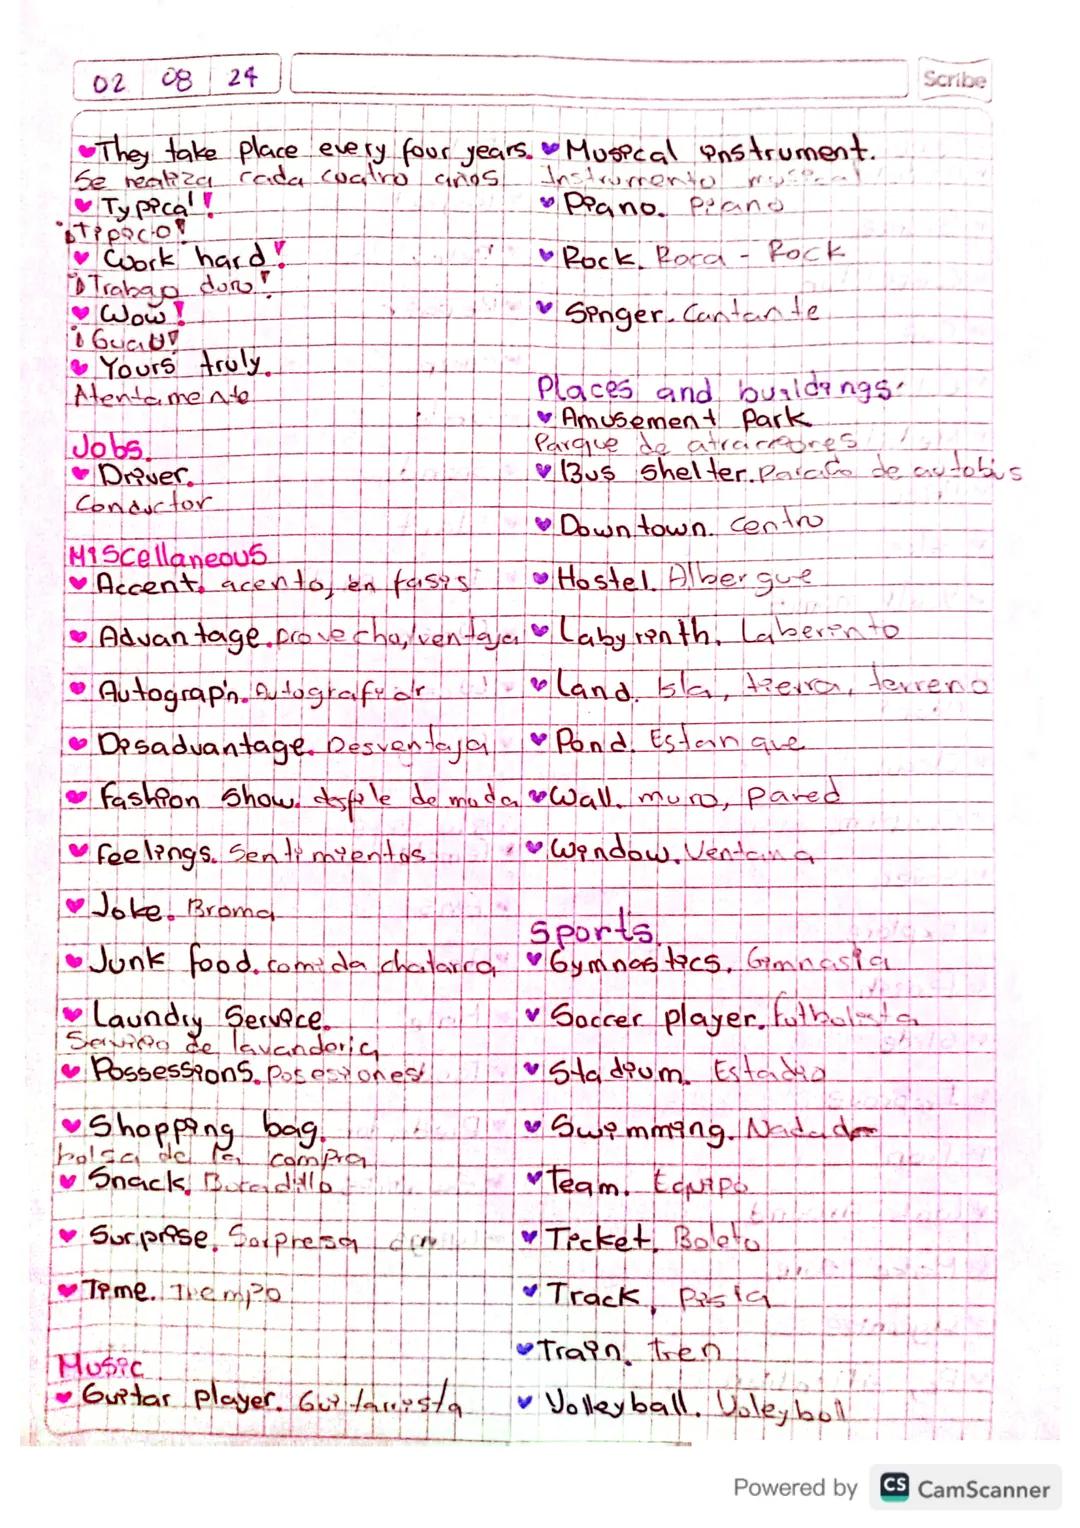 02 08 24
Scribe
They take place every four years.
Se realiza cada cuatro años
Typical!
¡Típico!
Work hard!
¡Trabajo duro!
Wow!
¡Guau!
Yours truly.
Atentamente
Jobs.
Driver.
Conductor
Miscellaneous
Accent. acento, en fasis
Advantage. provecho, ventaja
Autograph. Autografiar
Disadvantage. Desventaja
Fashion Show. desfile de moda
Feelings. Sentimientos
Joke. Broma
Junk food. comida chatarra
Laundry Service.
Servicio de lavanderia
Possessions. Posesiones
Shopping bag.
bolsa de la compra
Snack. Bocadillo
Surprise. Sorpresa
Time. Tiempo
Music
Guitar player. Guitarrista
Musical instrument.
Instrumento musical
Piano. Piano
Rock. Roca - Rock
Singer. Cantante
Places and buildings.
Amusement Park
Parque de atracciones
Bus shelter. de autobis
Downtown. Centro
Hostel. Albergue
Labyrinth. Laberinto
Land. Isla, tierra, terreno
Pond. Estanque
Wall. muro, pared
Window. Ventana
Sports.
Gymnastics. Gimnasia
Soccer player. Futbolista
Stadium. Estadio
Swimming.
Team. Equipo
Ticket. Boleto
Track. Pista
Train. Tren
Volleyball. Voleyboll
Powered by CS CamScanner